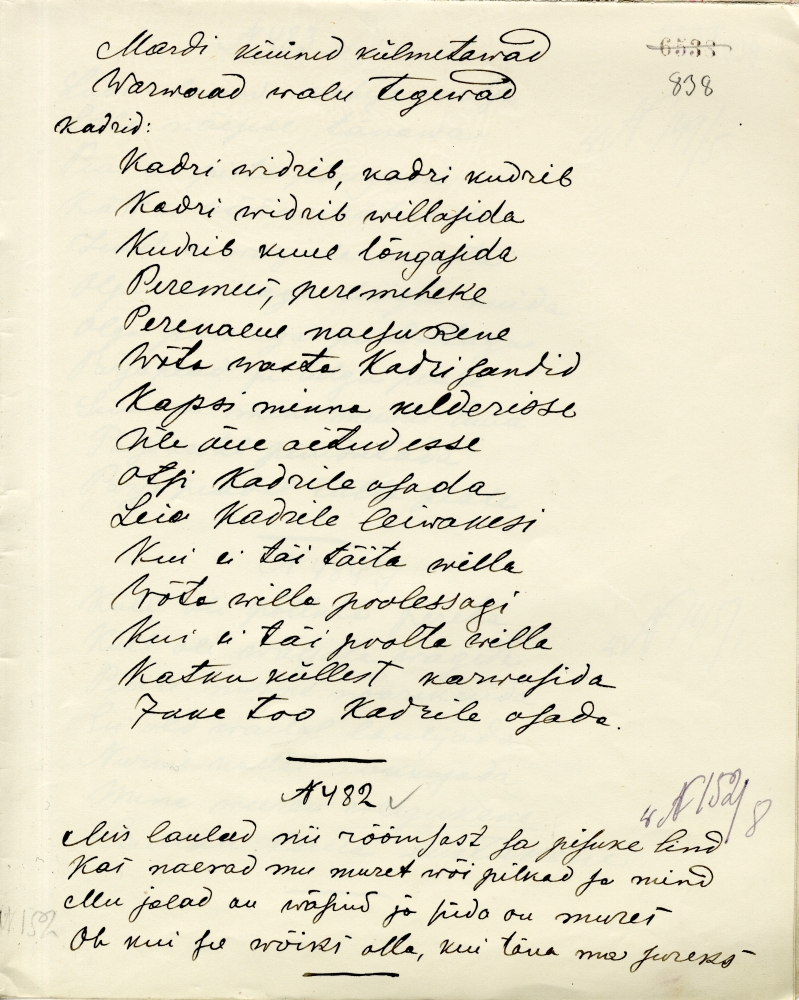 Mardi küüned külmetawad
6538
838
Warwaad walu tegewad
Kadrid:
Kadri widrib, kadri kudrib
Kadri widrib willasida
Kudrib kuue lõngasida
Peremees, peremeheke
Perenaene naesukene
Wõta wasta Kadri sandid
Kapsi minna kelderisse
Üle õue aitudesse
Otsi Kadrile osada
Leia Kadrile leiwakesi
Kui ei täi täita willa
Wõta willa poolessagi
Kui ei täi poolta willa
Katku küllest karwasida
Juue too Kadrile osada.
N 482
N 152/8
Mis laulad nii rõõmsast sa pisuke lind
Kas naerad mu muret wõi pilkad sa mind
Mu jalad on wäsind ja süda on mures
Oh kui see wõiks olla, kui täna ma sureks
N 152